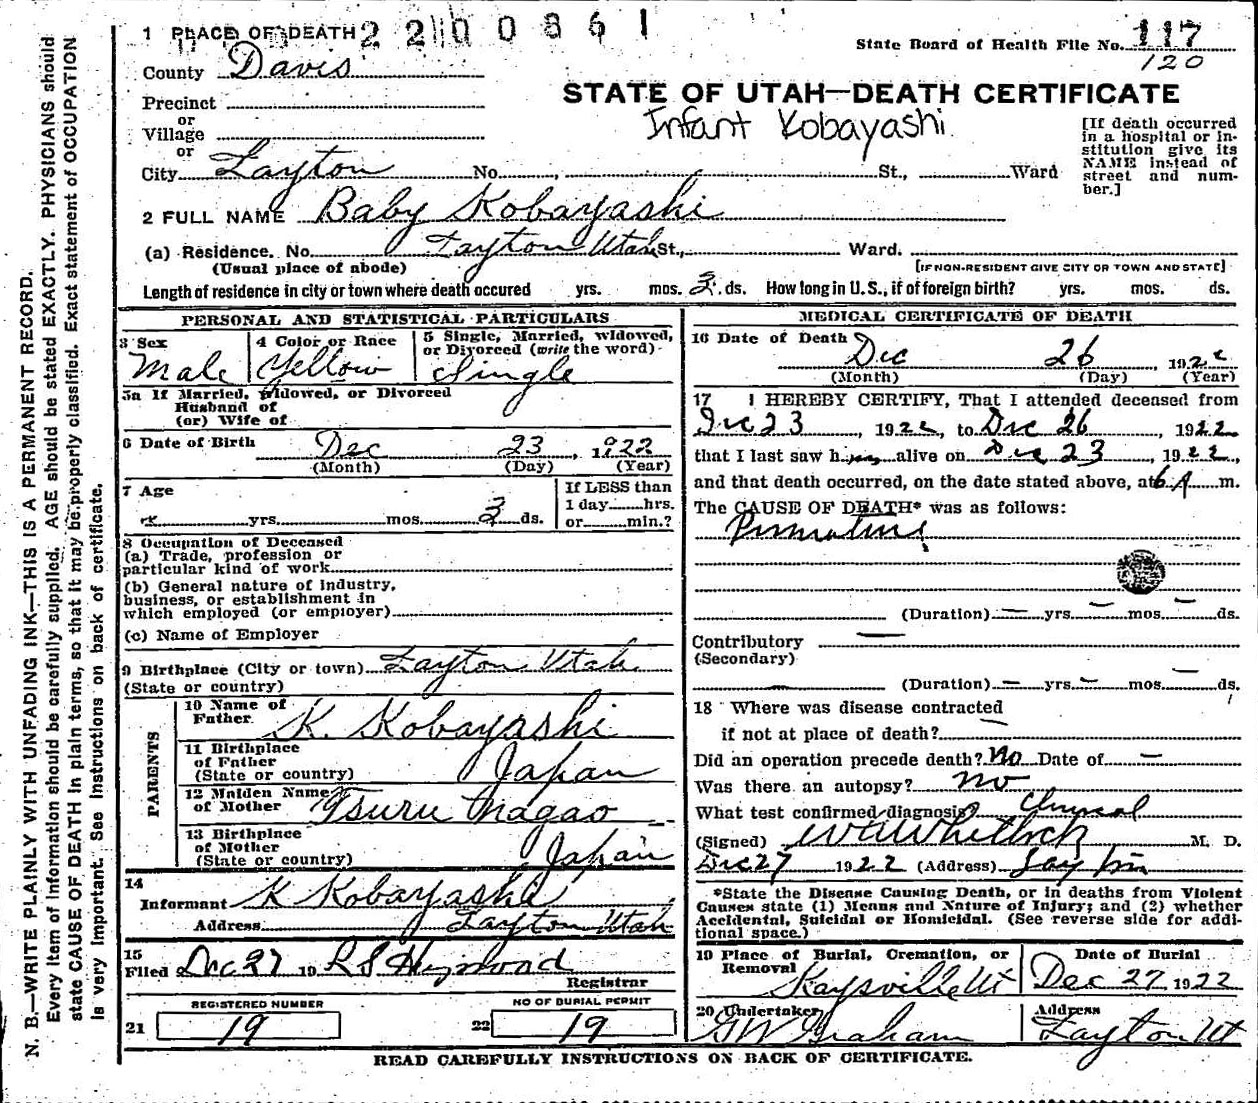 1 PLACE OF DEATH 2200861
State Board of Health File No. 117
120
County Davis
STATE OF UTAH—DEATH CERTIFICATE
Infant Kobayashi
Precinct
or
Village
or
City Layton No. , St., Ward
[If death occurred
in a hospital or in-
stitution give its
NAME instead of
street and num-
ber.]
2 FULL NAME Baby Kobayashi
(a) Residence. No. Layton Utah St., Ward.
(Usual place of abode)
[IF NON-RESIDENT GIVE CITY OR TOWN AND STATE]
Length of residence in city or town where death occured yrs. mos. 3 ds. How long in U. S., if of foreign birth? yrs. mos. ds.
PERSONAL AND STATISTICAL PARTICULARS
3 Sex
Male
4 Color or Race
Yellow
5 Single, Married, widowed,
or Divorced (write the word)
Single
5a If Married, Widowed, or Divorced
Husband of
(or) Wife of
6 Date of Birth Dec 23, 1922
(Month) (Day) (Year)
7 Age
yrs. mos. 3 ds.
If LESS than
1 day hrs.
or min.?
8 Occupation of Deceased
(a) Trade, profession or
particular kind of work
(b) General nature of industry,
business, or establishment in
which employed (or employer)
(c) Name of Employer
9 Birthplace (City or town) Layton Utah
(State or country)
PARENTS
10 Name of
Father K. Kobayashi
11 Birthplace
of Father
(State or country) Japan
12 Maiden Name
of Mother Tsuru Nagao
13 Birthplace
of Mother
(State or country) Japan
14
Informant K Kobayashi
Address Layton Utah
15
Filed Dec 27 19 R S Heywood
Registrar
REGISTERED NUMBER
21 19
NO OF BURIAL PERMIT
22 19
MEDICAL CERTIFICATE OF DEATH
16 Date of Death Dec 26 1922
(Month) (Day) (Year)
17 I HEREBY CERTIFY, That I attended deceased from
Dec 23, 1922, to Dec 26, 1922
that I last saw him alive on Dec 23, 1922,
and that death occurred, on the date stated above, at 6 A m.
The CAUSE OF DEATH* was as follows:
(Duration) — yrs. — mos. — ds.
Contributory —
(Secondary)
— (Duration) — yrs. — mos. — ds.
18 Where was disease contracted
if not at place of death? —
Did an operation precede death? No Date of —
Was there an autopsy? no
What test confirmed diagnosis? Clinical
(Signed) W A Whitlock M. D.
Dec 27 1922 (Address) Layton
*State the Disease Causing Death, or in deaths from Violent
Causes state (1) Means and Nature of Injury; and (2) whether
Accidental, Suicidal or Homicidal. (See reverse side for addi-
tional space.)
19 Place of Burial, Cremation, or
Removal
Kaysville Ut
Date of Burial
Dec 27 1922
20 Undertaker
G W Graham
Address
Layton Ut
READ CAREFULLY INSTRUCTIONS ON BACK OF CERTIFICATE.
N. B.—WRITE PLAINLY WITH UNFADING INK—THIS IS A PERMANENT RECORD.
Every item of information should be carefully supplied. AGE should be stated EXACTLY. PHYSICIANS should
state CAUSE OF DEATH in plain terms, so that it may be properly classified. Exact statement of OCCUPATION
is very important. See instructions on back of certificate.